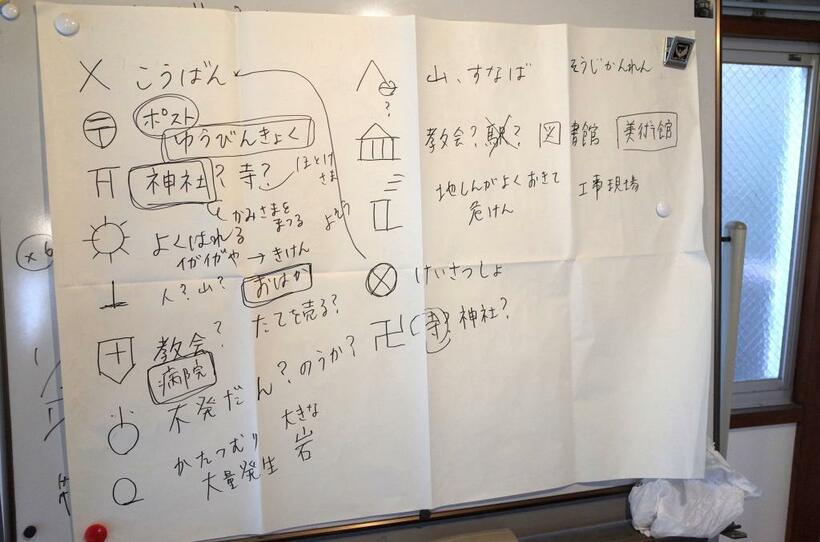 こうばん
ポスト
ゆうびんきょく
神社? 寺?
ほとけ
さま
かみさまを
まつる
よくはれる
イガイガや → きけん
人? 山? おはか
教会? たてを売る?
病院
不発だん? のうか?
かたつむり
大量発生
大きな
岩
山、すなば そうじかんれん
?
教会? 駅? 図書館 美術館
地しんがよくおきて
危けん
工事現場
けいさつしょ
寺? 神社?
×6